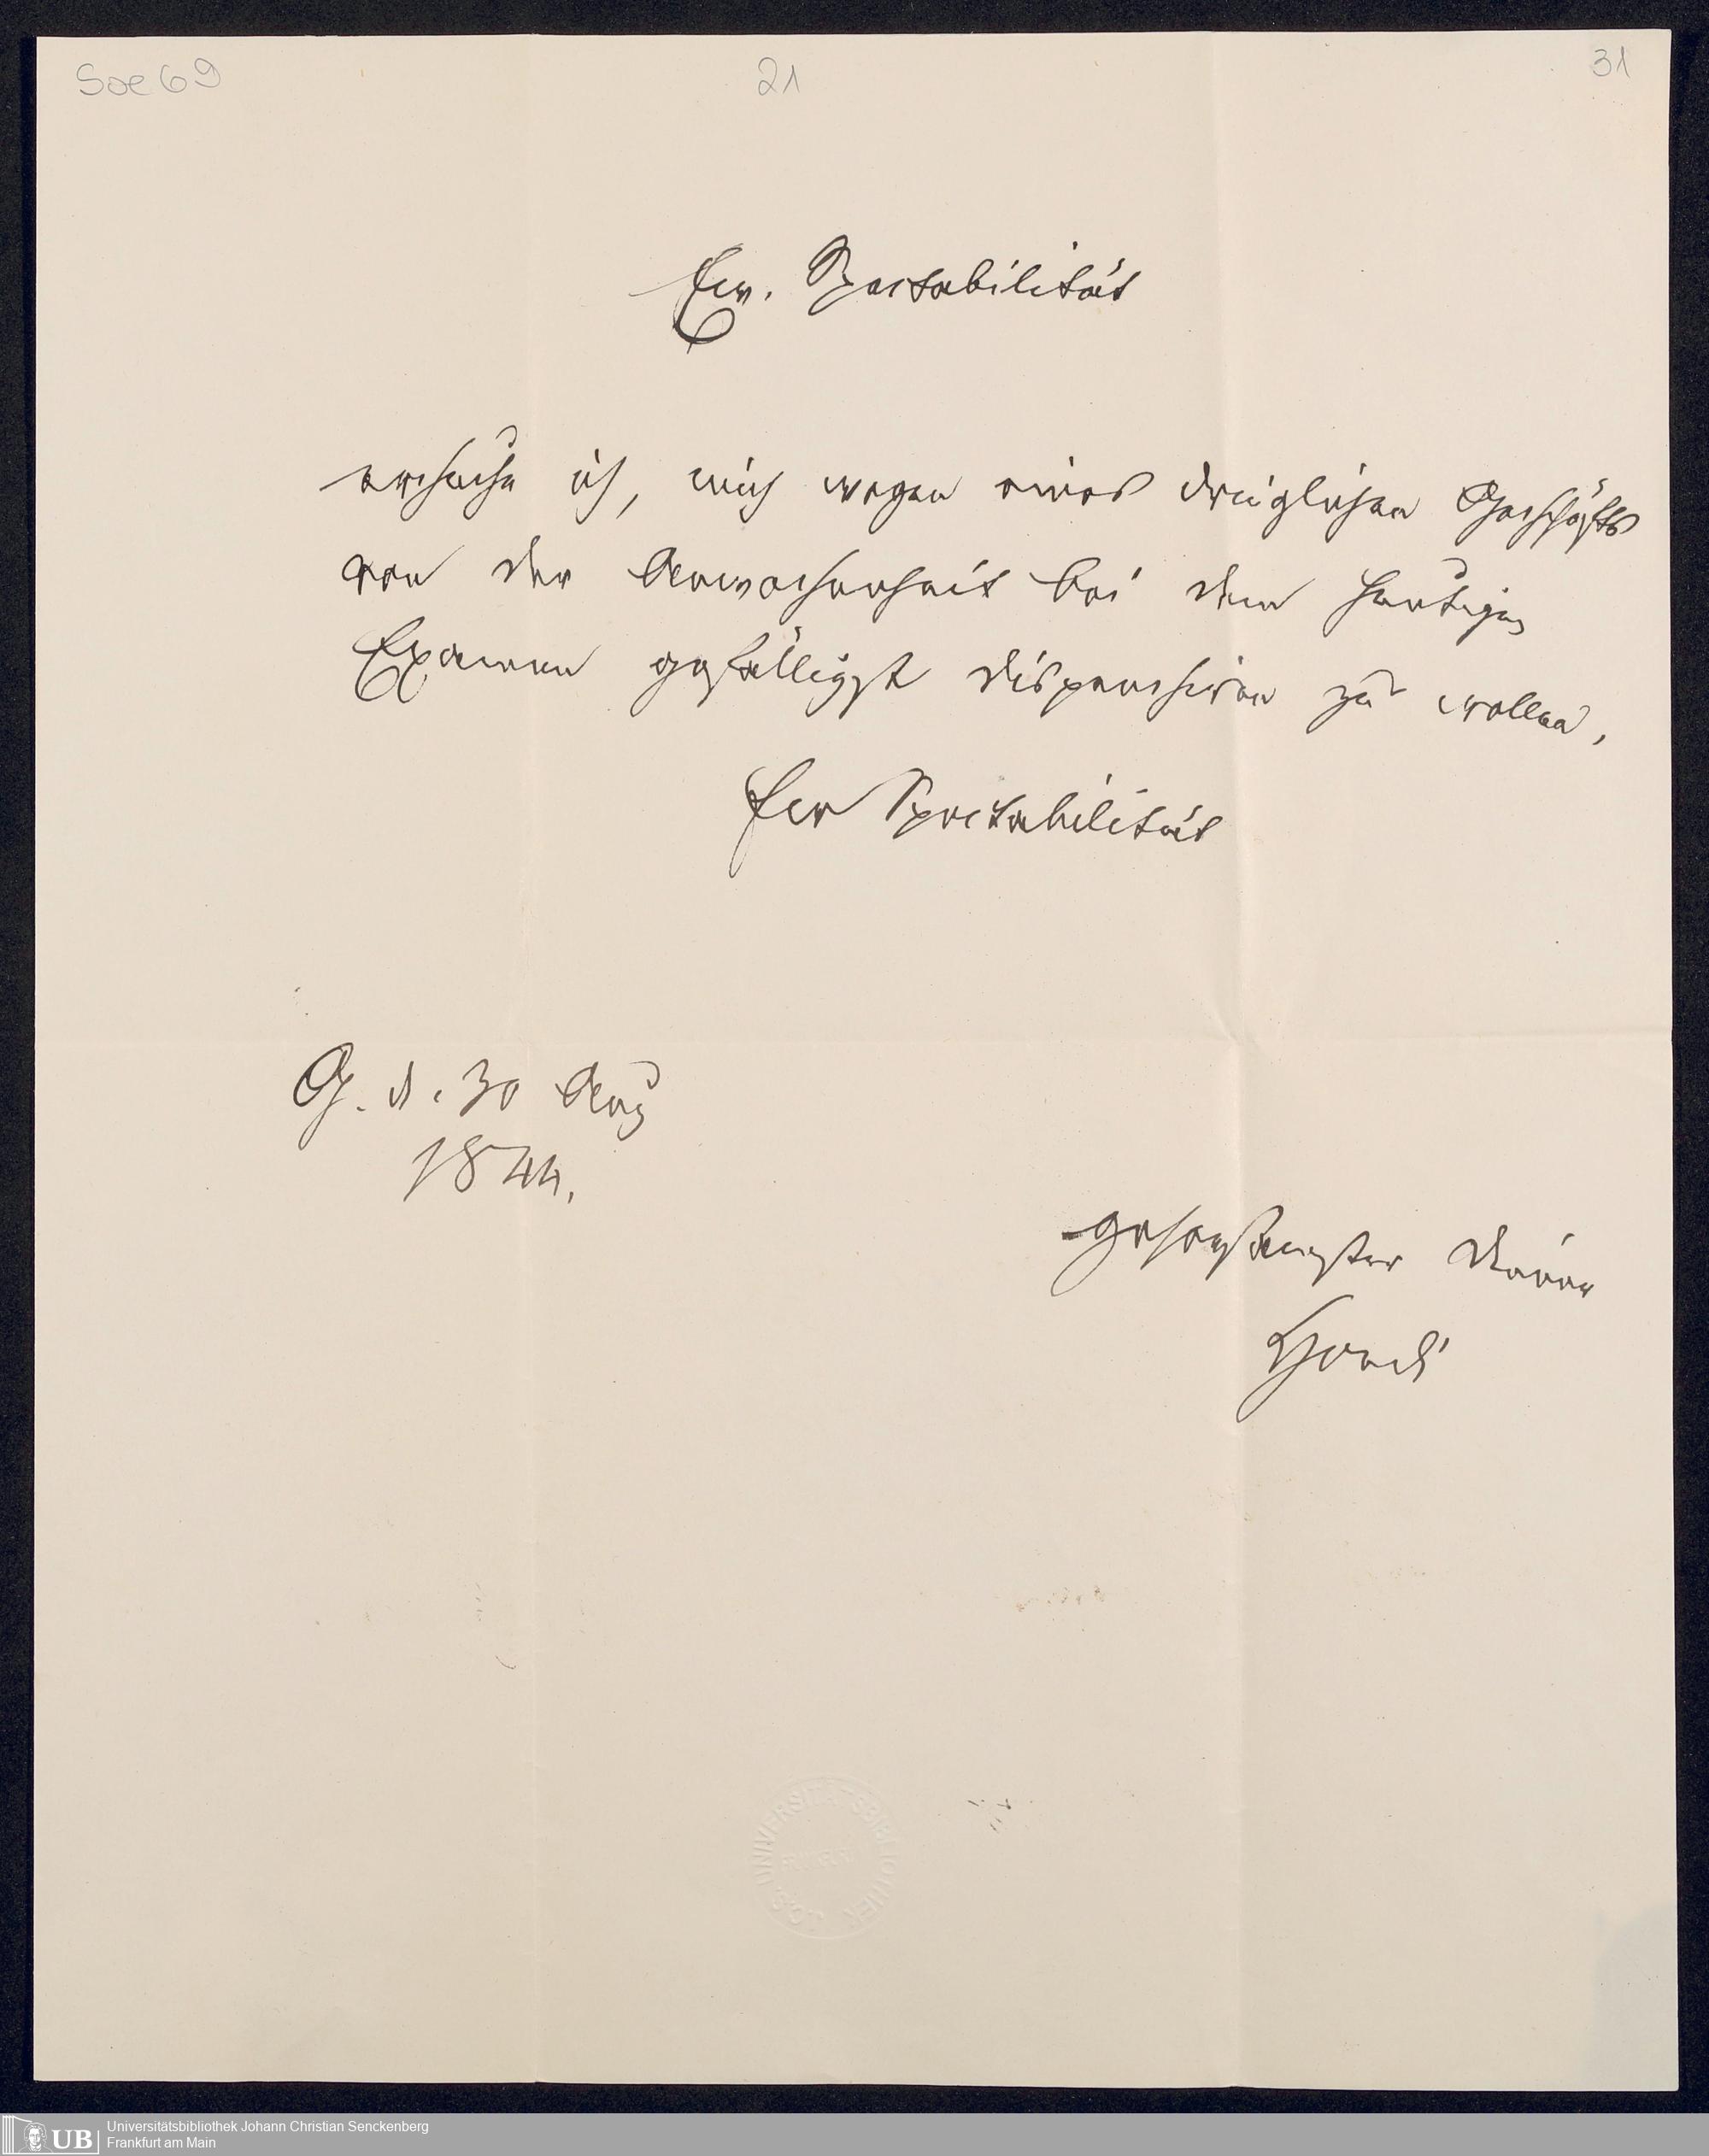 Soe 69
21
31
Ew. Spectabilität
ersuche ich, mich wegen eines dringlichen Geschäfts
von der Anwesenheit bei dem heutigen
Examen gefälligst dispensiren zu wollen,
Ew Spectabilität
G. d. 30 Aug
1844.
gehorsamster Diener
UNIVERSITÄTSBIBLIOTHEK
UB
Universitätsbibliothek Johann Christian Senckenberg
Frankfurt am Main